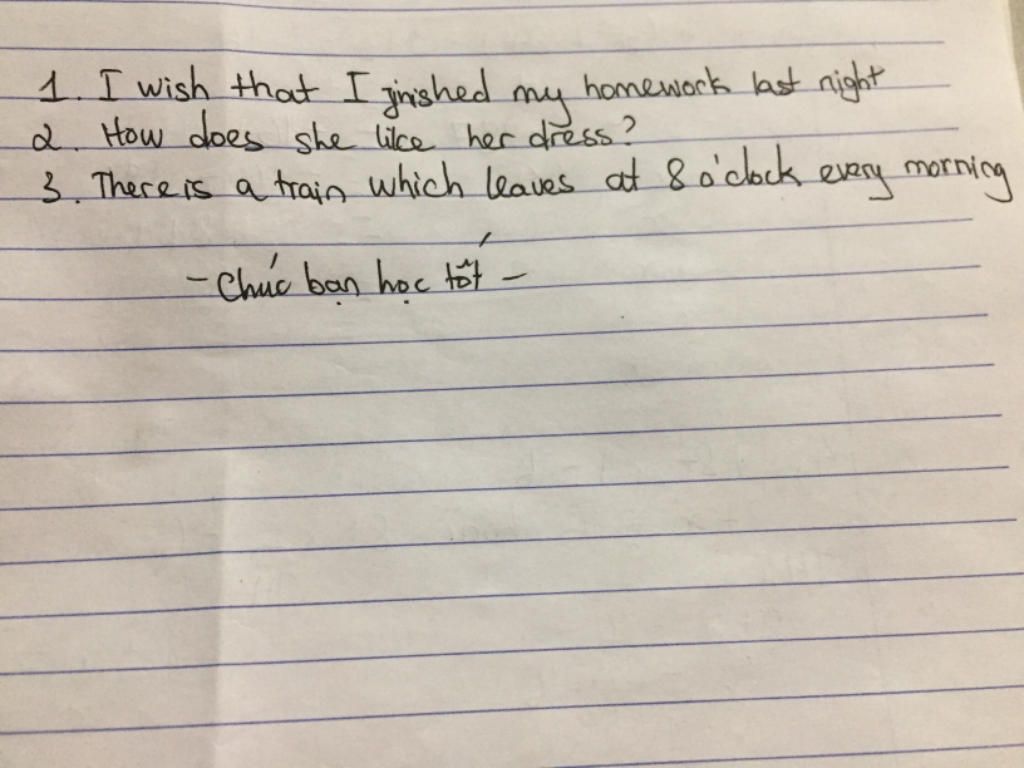 1. I wish that I finished my homework last night
2. How does she like her dress?
3. There is a train which leaves at 8 o'clock every morning
- Chúc bạn học tốt -